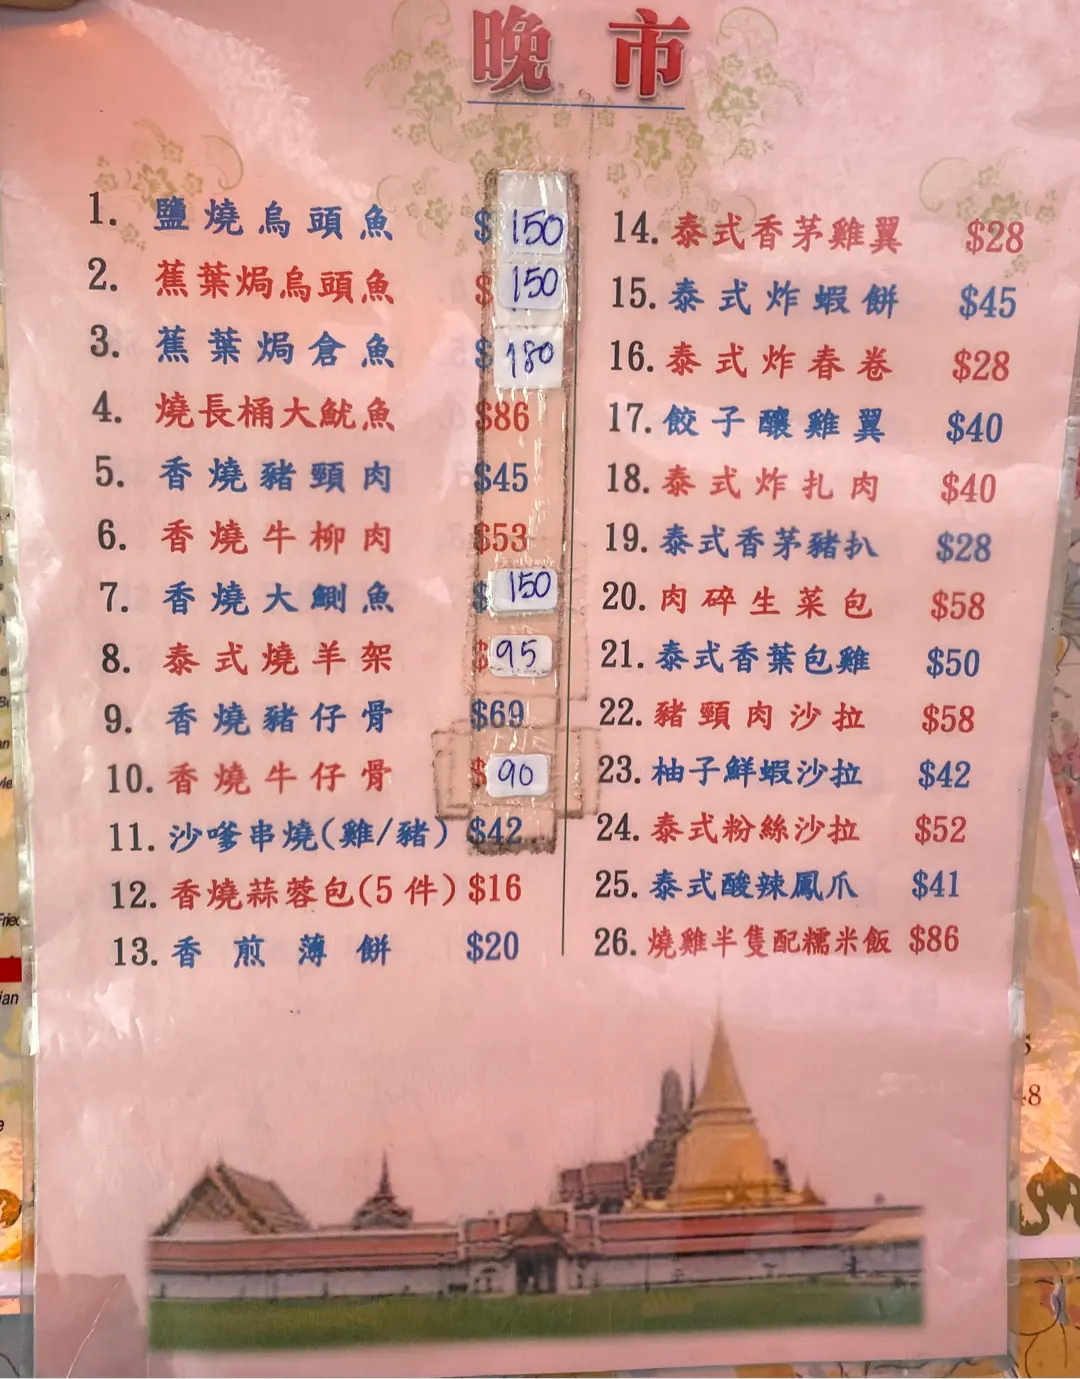 晚市
1. 鹽燒烏頭魚 $150
2. 蕉葉焗烏頭魚 $150
3. 蕉葉焗倉魚 $180
4. 燒長桶大魷魚 $86
5. 香燒豬頸肉 $45
6. 香燒牛柳肉 $53
7. 香燒大鯻魚 $150
8. 泰式燒羊架 $95
9. 香燒豬仔骨 $69
10. 香燒牛仔骨 $90
11. 沙嗲串燒(雞/豬) $42
12. 香燒蒜蓉包(5件) $16
13. 香煎薄餅 $20
14. 泰式香茅雞翼 $28
15. 泰式炸蝦餅 $45
16. 泰式炸春卷 $28
17. 餃子釀雞翼 $40
18. 泰式炸扎肉 $40
19. 泰式香茅豬扒 $28
20. 肉碎生菜包 $58
21. 泰式香葉包雞 $50
22. 豬頸肉沙拉 $58
23. 柚子鮮蝦沙拉 $42
24. 泰式粉絲沙拉 $52
25. 泰式酸辣鳳爪 $41
26. 燒雞半隻配糯米飯 $86